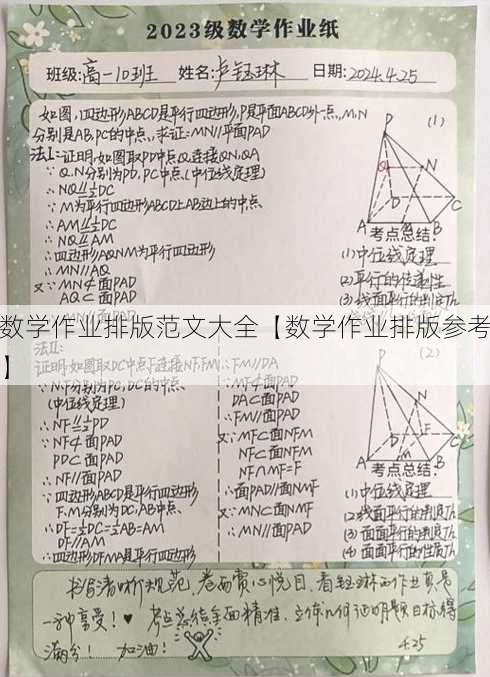 2023级数学作业纸
班级:高一10班 姓名:卢钰琳 日期:2024.4.25
如图,四边形ABCD是平行四边形,P是平面ABCD外一点,M,N
分别是AB,PC的中点,求证:MN//平面PAD
法1:证明:如图取PD中点Q,连接QN,QA
∵Q.N分别为PD,PC中点(中位线定理)
∴NQ∥=1/2DC
∵M为平行四边形ABCD上AB边上的中点
∴AM∥=1/2DC
∴NQ∥=AM
∴四边形AQNM为平行四边形
∴MN//AQ
又∵MN⊄面PAD
AQ⊂面PAD
(1)
P
Q
N
D
C
A
M
B
考点总结:
(1)中位线定理
(2)平行的传递性
(3)线面平行的判定Th
数学作业排版范文大全【数学作业排版参考
】
法2:
证明:如图取DC中点F,连接NF,FM
∵N,F分别为PC,DC的中点
(中位线定理)
∴NF∥=1/2PD
又∵NF⊄面PAD
PD⊂面PAD
∴NF//面PAD
∵四边形ABCD是平行四边形
F.M分别为DC,AB中点
∴DF=1/2DC=1/2AB=AM
DF//AM
∴四边形DFMA是平行四边形
∴FM//DA
又∵FM⊄面PAD
DA⊂面PAD
∴FM//面PAD
又∵MF⊂面NFM
NF⊂面NFM
NF∩MF=F
∴面PAD//面NMF
又∵MN⊂面NMF
∴MN//面PAD
(2)
P
N
D
F
C
A
M
B
考点总结:
(1)中位线定理
(2)线面平行的判定Th
(3)面面平行的判定Th
(4)面面平行的性质Th
书写清晰规范,卷面赏心悦目,看钰琳的作业真是
一种享受!♥考点总结全面精准,立体几何证明题目标得
满分!加油!
4.25